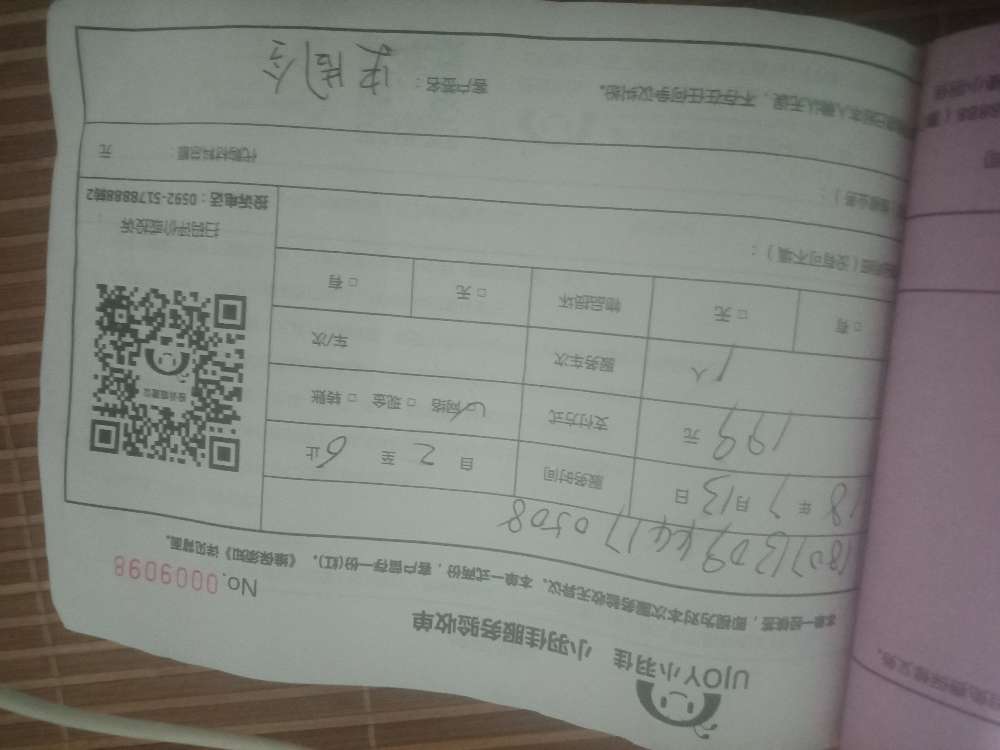 UJOY小羽佳 小羽佳服务验收单
No.0009098
本单一经核签，即视为对本次服务验收无异议。本单一式两份，客户留存一份(红)。《维保须知》详见背面。
18 年 7 月 13 日 服务时间 自 2 至 6 止
199 元 支付方式 网络 □ 现金 □ 转账
1 人 服务车次 车/次
□ 有 □ 无 物品损坏 □ 无 □ 有
(没有可不填)：
扫码评价或投诉
投诉电话：0592-5178888转2
代购材料总额： 元
本人确认无误，不存在任何争议纠纷。 客户签名：